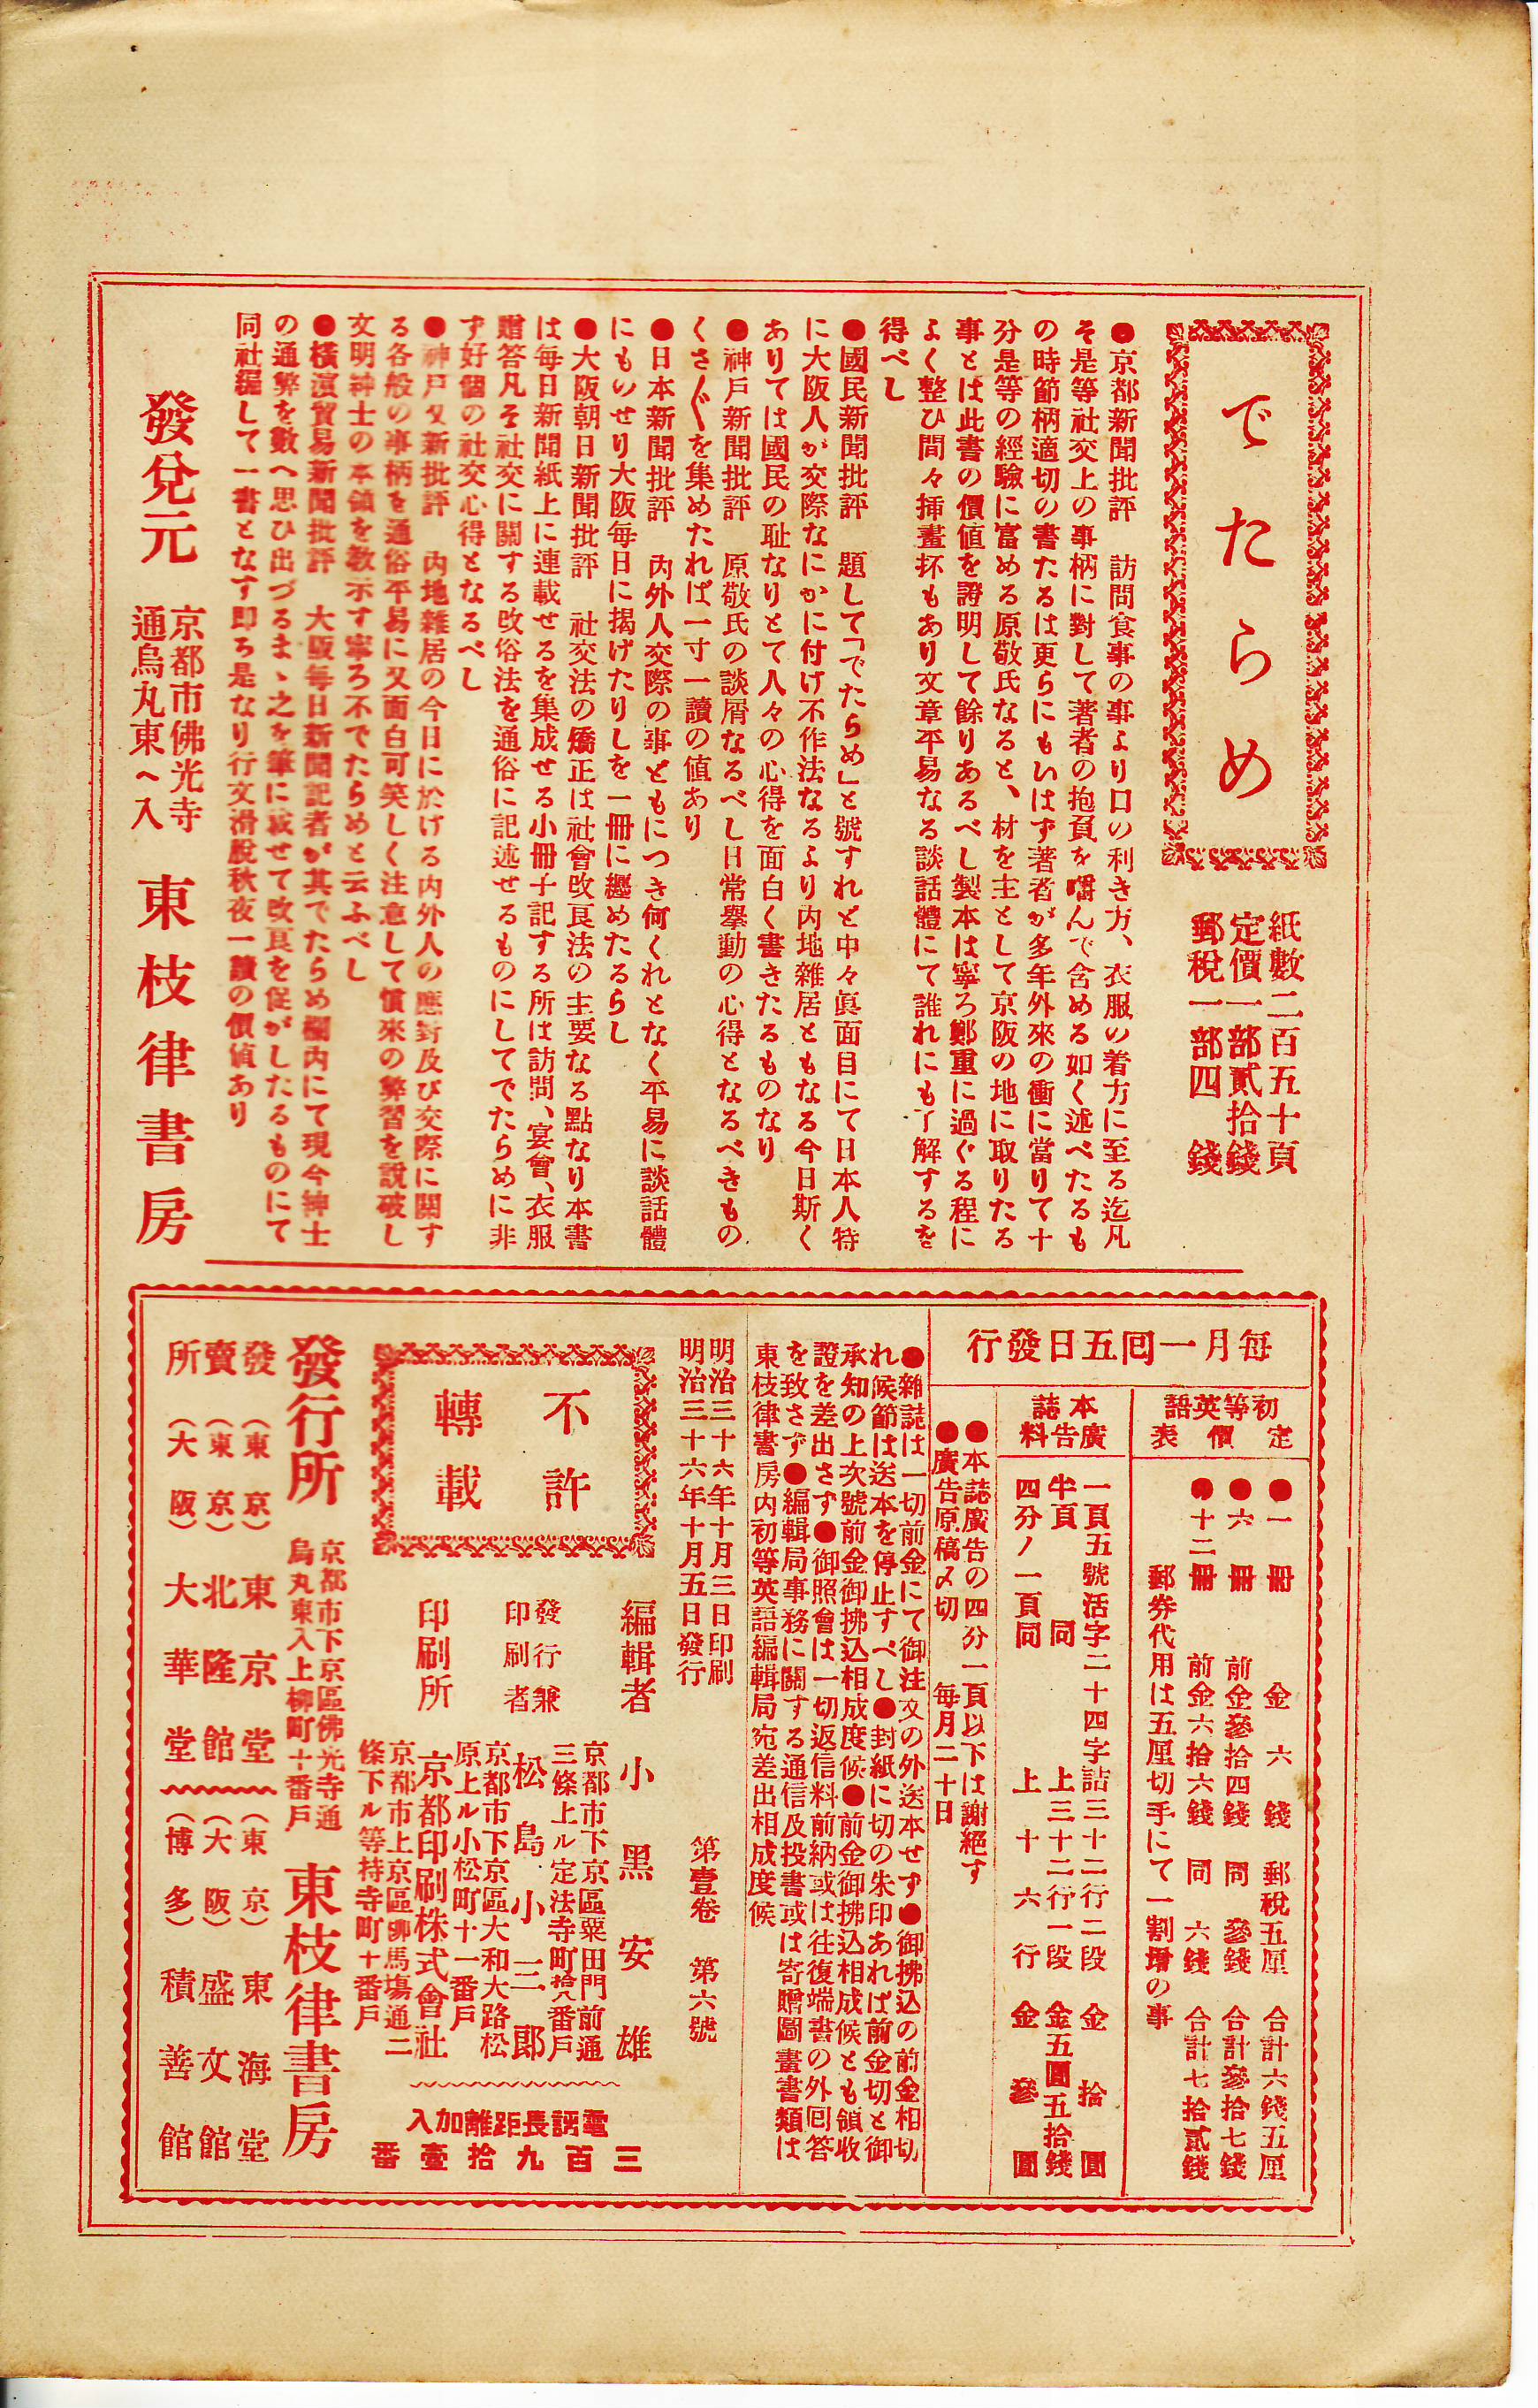 でたらめ
紙數二百五十頁
定價一部貳拾錢
郵稅一部四錢
●京都新聞批評 訪問食事の事より口の利き方、衣服の着方に至る迄凡
そ是等社交上の事柄に對して著者の抱負を嚼んで含める如く述べたるも
の時節柄適切の書たるは更らにもいはず著者が多年外來の衝に當りて十
分是等の經驗に富める原敬氏なると、材を主として京阪の地に取りたる
事とは此書の價値を證明して餘りあるべし製本は寧ろ鄭重に過ぐる程に
よく整ひ間々挿畫抔もあり文章平易なる談話體にて誰れにも了解するを
得べし
●國民新聞批評 題して「でたらめ」と號すれど中々眞面目にて日本人特
に大阪人が交際なにかに付け不作法なるより内地雜居ともなる今日斯く
ありては國民の耻なりとて人々の心得を面白く書きたるものなり
●神戶新聞批評 原敬氏の談屑なるべし日常擧動の心得となるべきもの
くさ〲を集めたれば一寸一讀の値あり
●日本新聞批評 内外人交際の事どもにつき何くれとなく平易に談話體
にものせり大阪每日に揭げたりしを一冊に纒めたるらし
●大阪朝日新聞批評 社交法の矯正は社會改良法の主要なる點なり本書
は每日新聞紙上に連載せるを集成せる小冊子記する所は訪問、宴會、衣服
贈答凡そ社交に關する改俗法を通俗に記述せるものにしてでたらめに非
ず好個の社交心得となるべし
●神戶又新批評 内地雜居の今日に於ける内外人の應對及び交際に關す
る各般の事柄を通俗平易に又面白可笑しく注意して慣來の弊習を說破し
文明紳士の本領を敎示す寧ろ不でたらめと云ふべし
●橫濱貿易新聞批評 大阪每日新聞記者が其でたらめ欄内にて現今紳士
の通弊を數へ思ひ出づるまゝ之を筆に載せて改良を促がしたるものにて
同社編して一書となす即ち是なり行文滑脫秋夜一讀の價値あり
發兌元
京都市佛光寺
通烏丸東へ入
東枝律書房
每月一回五日發行
初等英語
定價表
●一冊 金六錢 郵稅五厘 合計六錢五厘
●六冊 前金參拾四錢 同 參錢 合計參拾七錢
●十二冊 前金六拾六錢 同 六錢 合計七拾貳錢
郵券代用は五厘切手にて一割增の事
本誌
廣告料
一頁五號活字二十四字詰三十二行二段 金拾圓
半頁 同 上三十二行一段 金五圓五拾錢
四分ノ一頁同 上十六行 金參圓
●本誌廣告の四分一頁以下は謝絕す
●廣告原稿〆切 每月二十日
●雜誌は一切前金にて御注文の外送本せず●御拂込の前金相切
れ候節は送本を停止すべし●封紙に切の朱印あれば前金切と御
承知の上次號前金御拂込相成度候●前金御拂込相成候とも領收
證を差出さず●御照會は一切返信料前納或は往復端書の外回答
を致さず●編輯局事務に關する通信及投書或は寄贈圖畫書類は
東枝律書房内初等英語編輯局宛差出相成度候
明治三十六年十月三日印刷
明治三十六年十月五日發行
第壹卷 第六號
不許
轉載
編輯者 小黑安雄
京都市下京區粟田門前通
三條上ル定法寺町拾八番戶
發行兼
印刷者
松島小三郎
京都市下京區大和大路松
原上ル小松町十一番戶
印刷所 京都印刷株式會社
京都市上京區柳馬塲通二
條下ル等持寺町十番戶
電話長距離加入
三百九拾壹番
發行所
京都市下京區佛光寺通
烏丸東入上柳町十番戶
東枝律書房
發賣所
(東京)東京堂 (東京)東海堂
(東京)北隆館 (大阪)盛文館
(大阪)大華堂 (博多)積善館